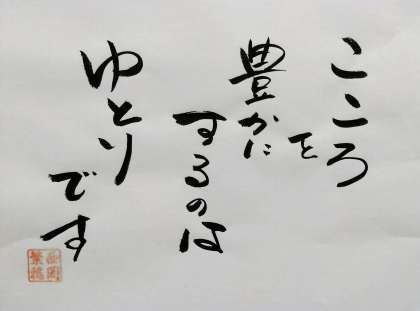 こころ
を
豊かに
するのは
ゆとり
です